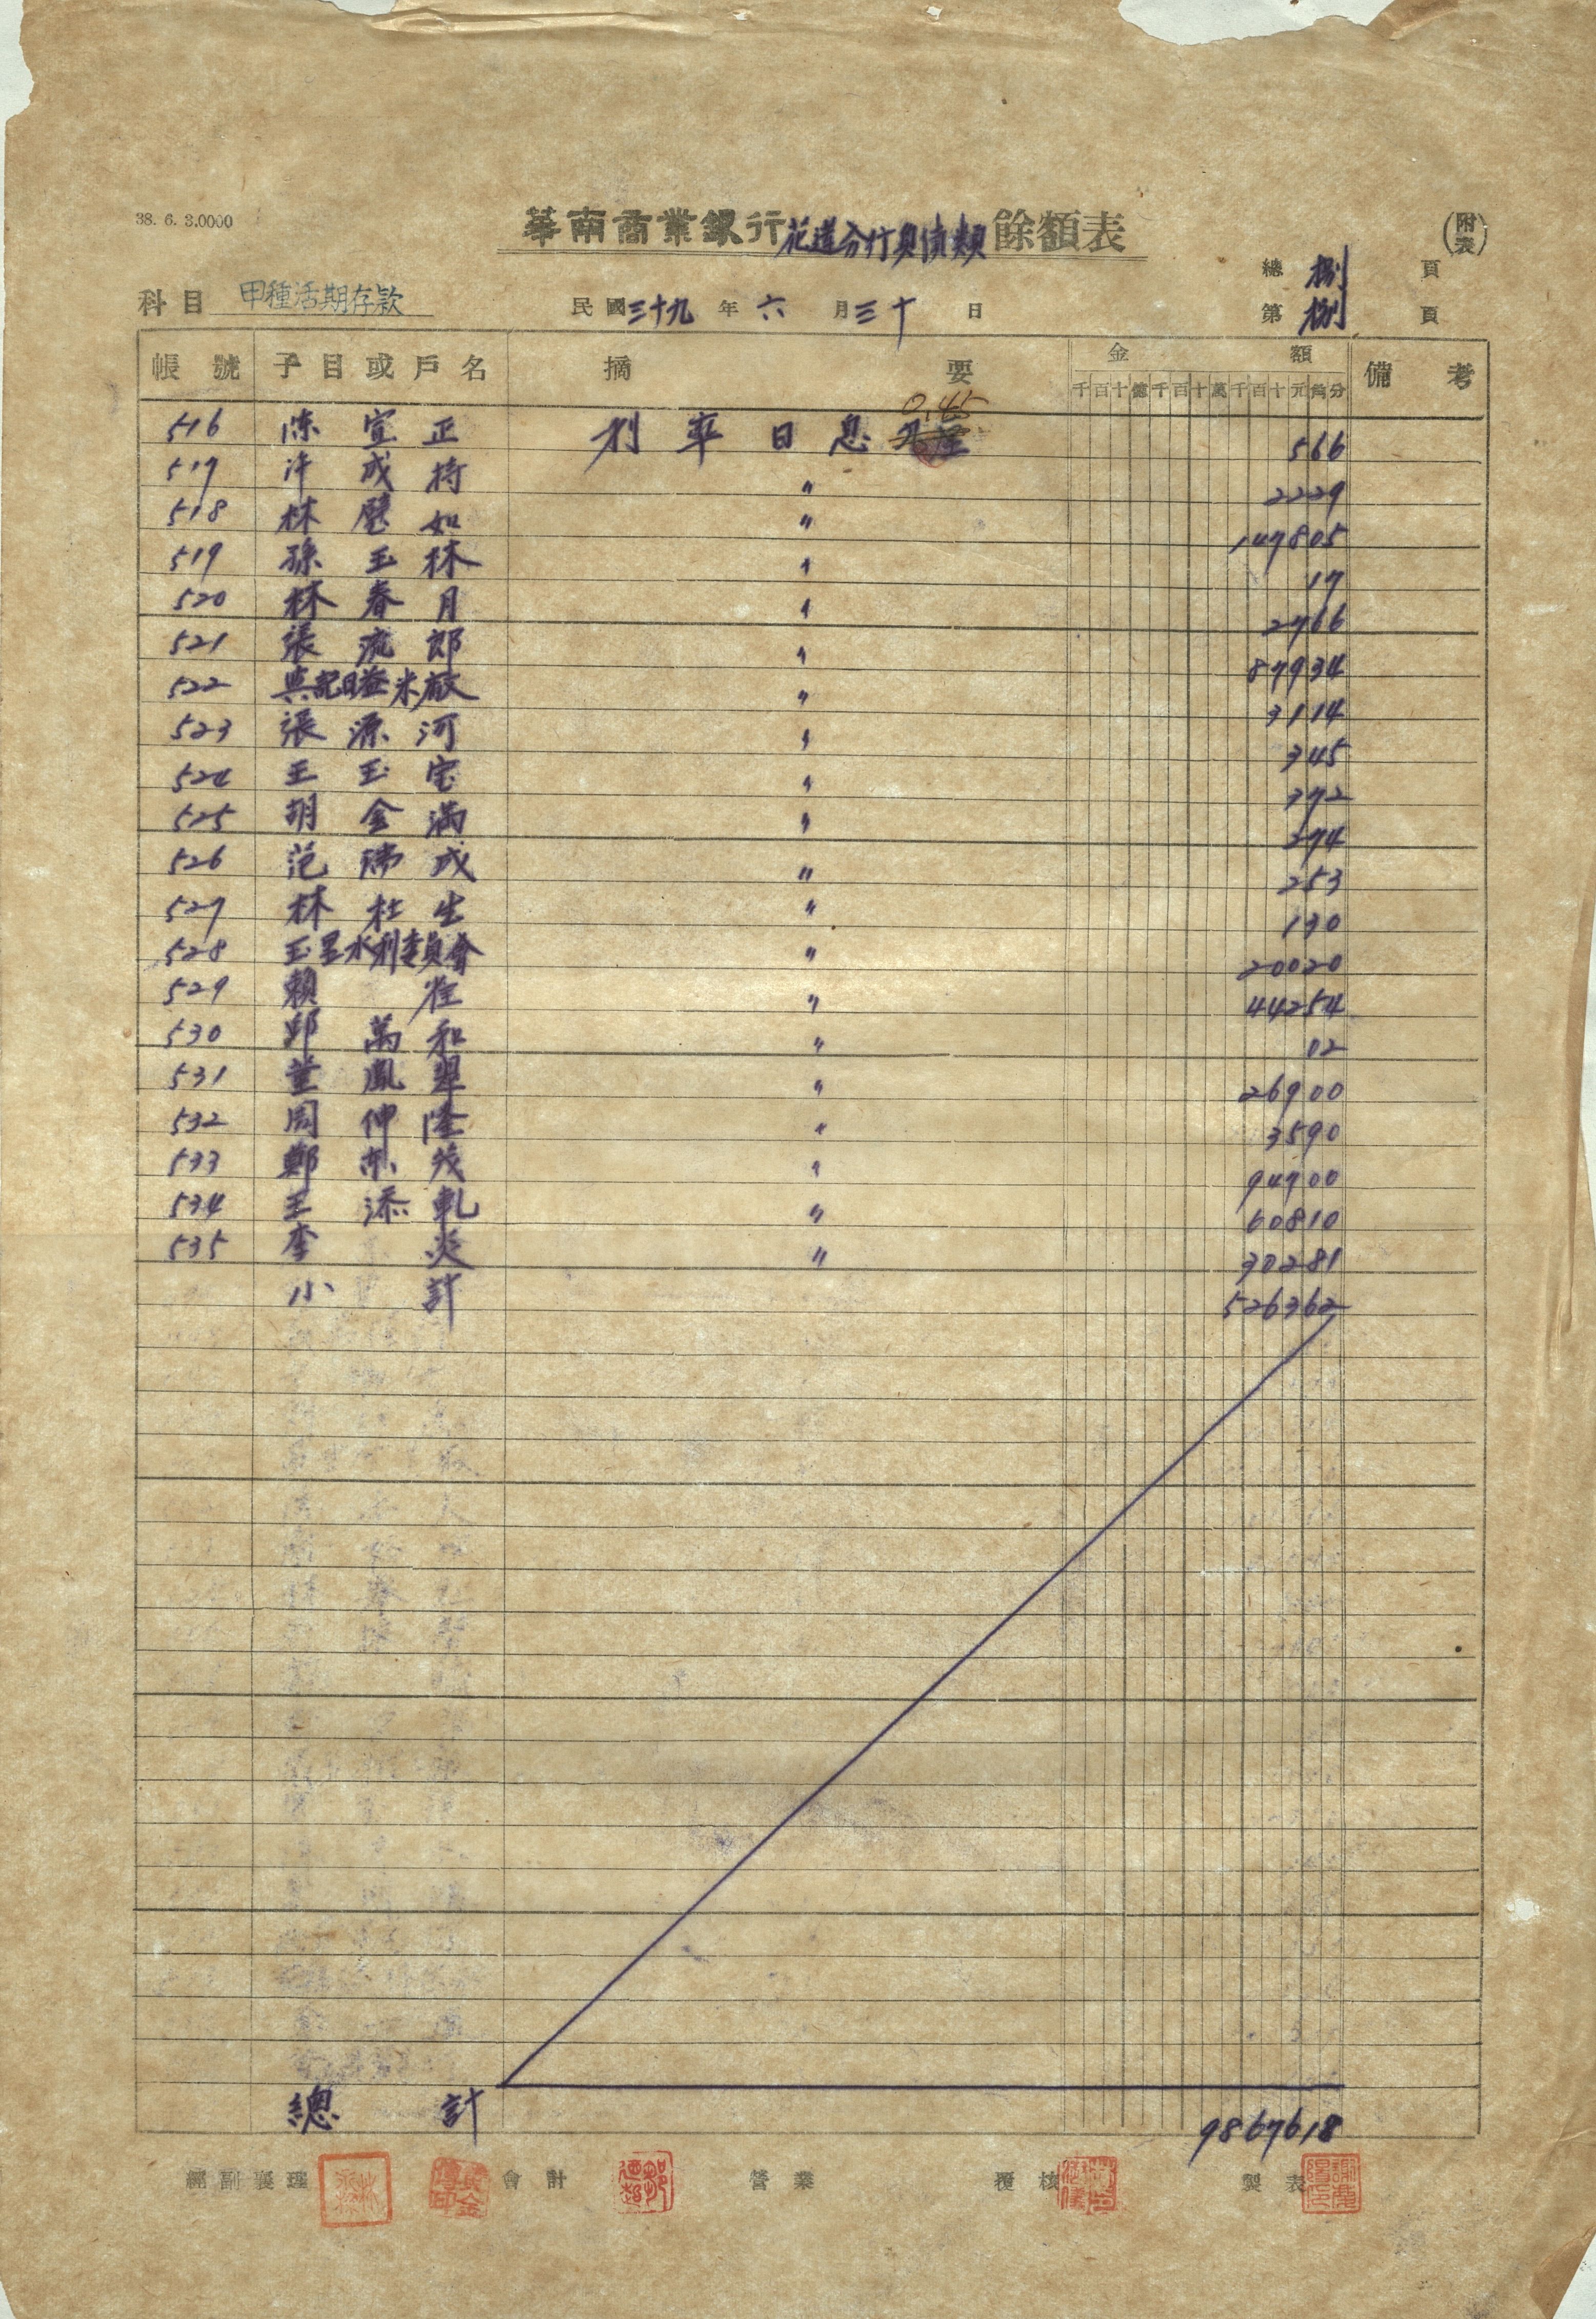 38. 6. 3.0000
華南商業銀行花蓮分行負債類餘額表
(附表)
總 捌 頁
科目 甲種活期存款 民國三十九年六月三十日 第 捌 頁
帳號 子目或戶名 摘要 金額 備考
千百十億千百十萬千百十元角分
0.45
516 陳宣正 利率日息 566
517 許成持 〃 2229
518 林 如 〃 147805
519 孫玉林 〃 17
520 林春月 〃 2766
521 張流郎 〃 87934
522 興記日益米廠 〃 3114
523 張源河 〃 345
524 王玉宝 〃 372
525 胡金滿 〃 274
526 范瑞成 〃 253
527 林杜生 〃 130
528 玉里水利委員會 〃 20020
529 賴 〃 44254
530 邱萬和 〃 02
531 董鳳翠 〃 26900
532 周伸隆 〃 3590
533 鄭 茂 〃 94700
534 王添軋 〃 60810
535 李炎 〃 30281
小計 526362
總計 9867618
經副襄理 會計 營業 覆核 製表